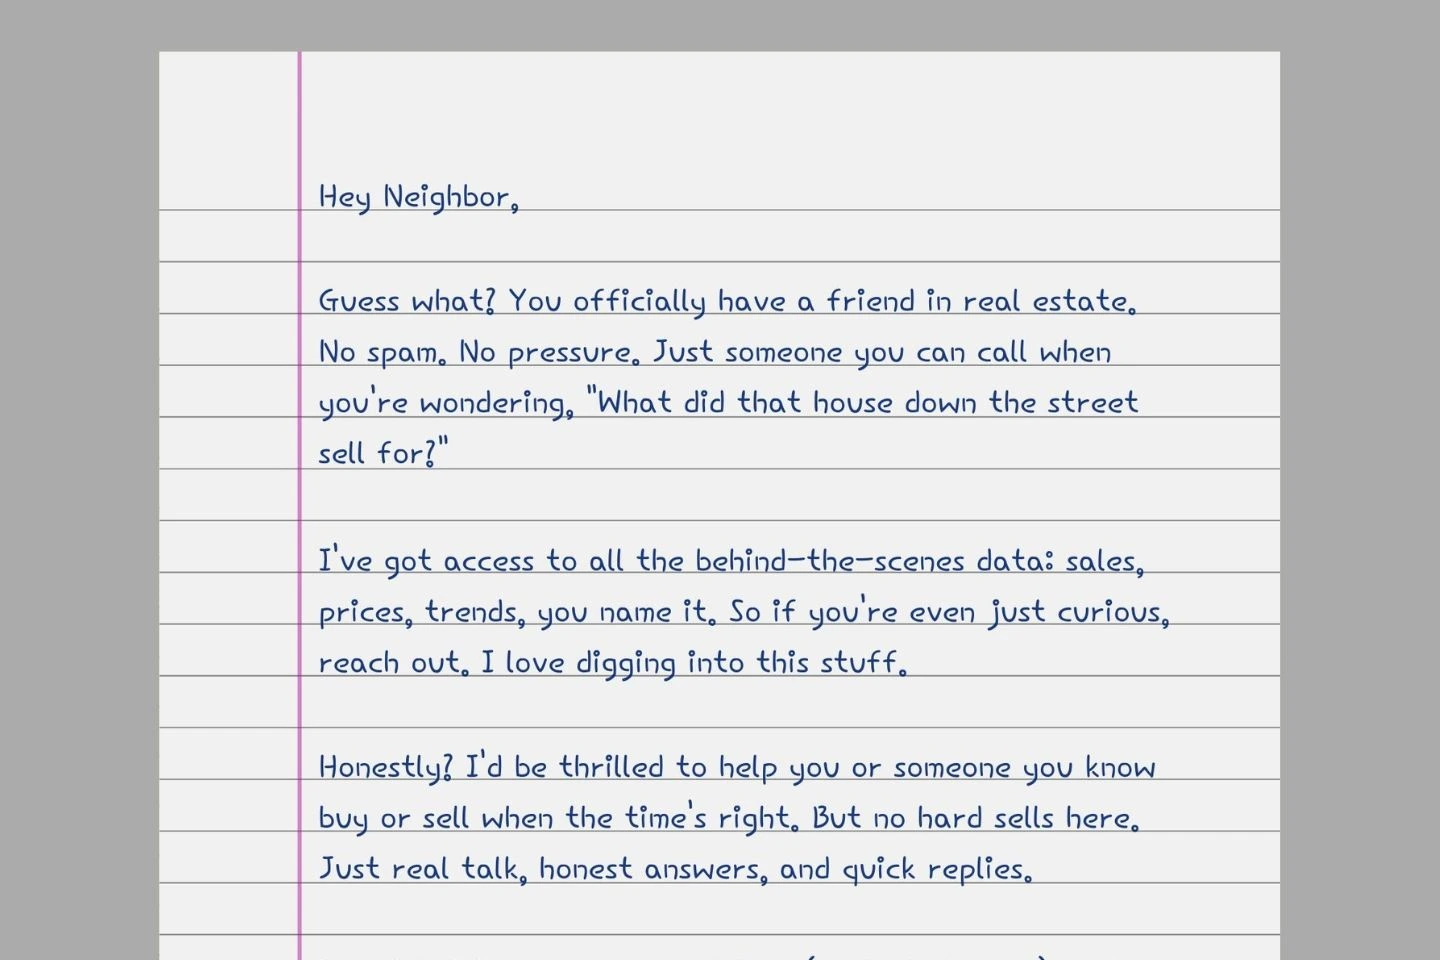 Hey Neighbor,
Guess what? You officially have a friend in real estate.
No spam. No pressure. Just someone you can call when
you're wondering, "What did that house down the street
sell for?"
I've got access to all the behind-the-scenes data: sales,
prices, trends, you name it. So if you're even just curious,
reach out. I love digging into this stuff.
Honestly? I'd be thrilled to help you or someone you know
buy or sell when the time's right. But no hard sells here.
Just real talk, honest answers, and quick replies.